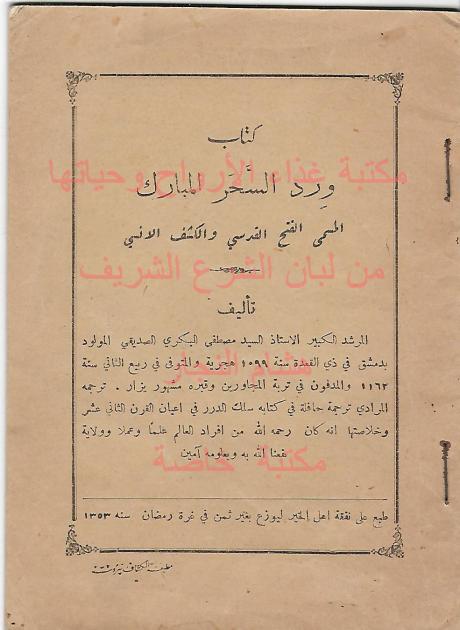 كتاب
مكتبة غذاء الأرواح وحياتها
ورد السَّحَر المبارك
المسمى الفتح القدسي والكشف الانسي
من لبان الشرع الشريف
تأليف
المرشد الكبير الاستاذ السيد مصطفى البكري الصديقي المولود
بدمشق في ذي القعدة سنة ١٠٩٩ هجرية والمتوفى في ربيع الثاني سنة
هشام النجار
١١٦٢ والمدفون في تربة المجاورين وقبره مشهور يزار . ترجمه
المرادي ترجمة حافلة في كتابه سلك الدرر في اعيان القرن الثاني عشر
وخلاصتها انه كان رحمه الله من افراد العالم علماً وعملا وولاية
نفعنا الله به وبعلومه آمين
مكتبة خاصة
طبع على نفقة اهل الخير ليوزع بغير ثمن في غرة رمضان سنه ١٣٥٣
مطبعة الكشاف بيروت